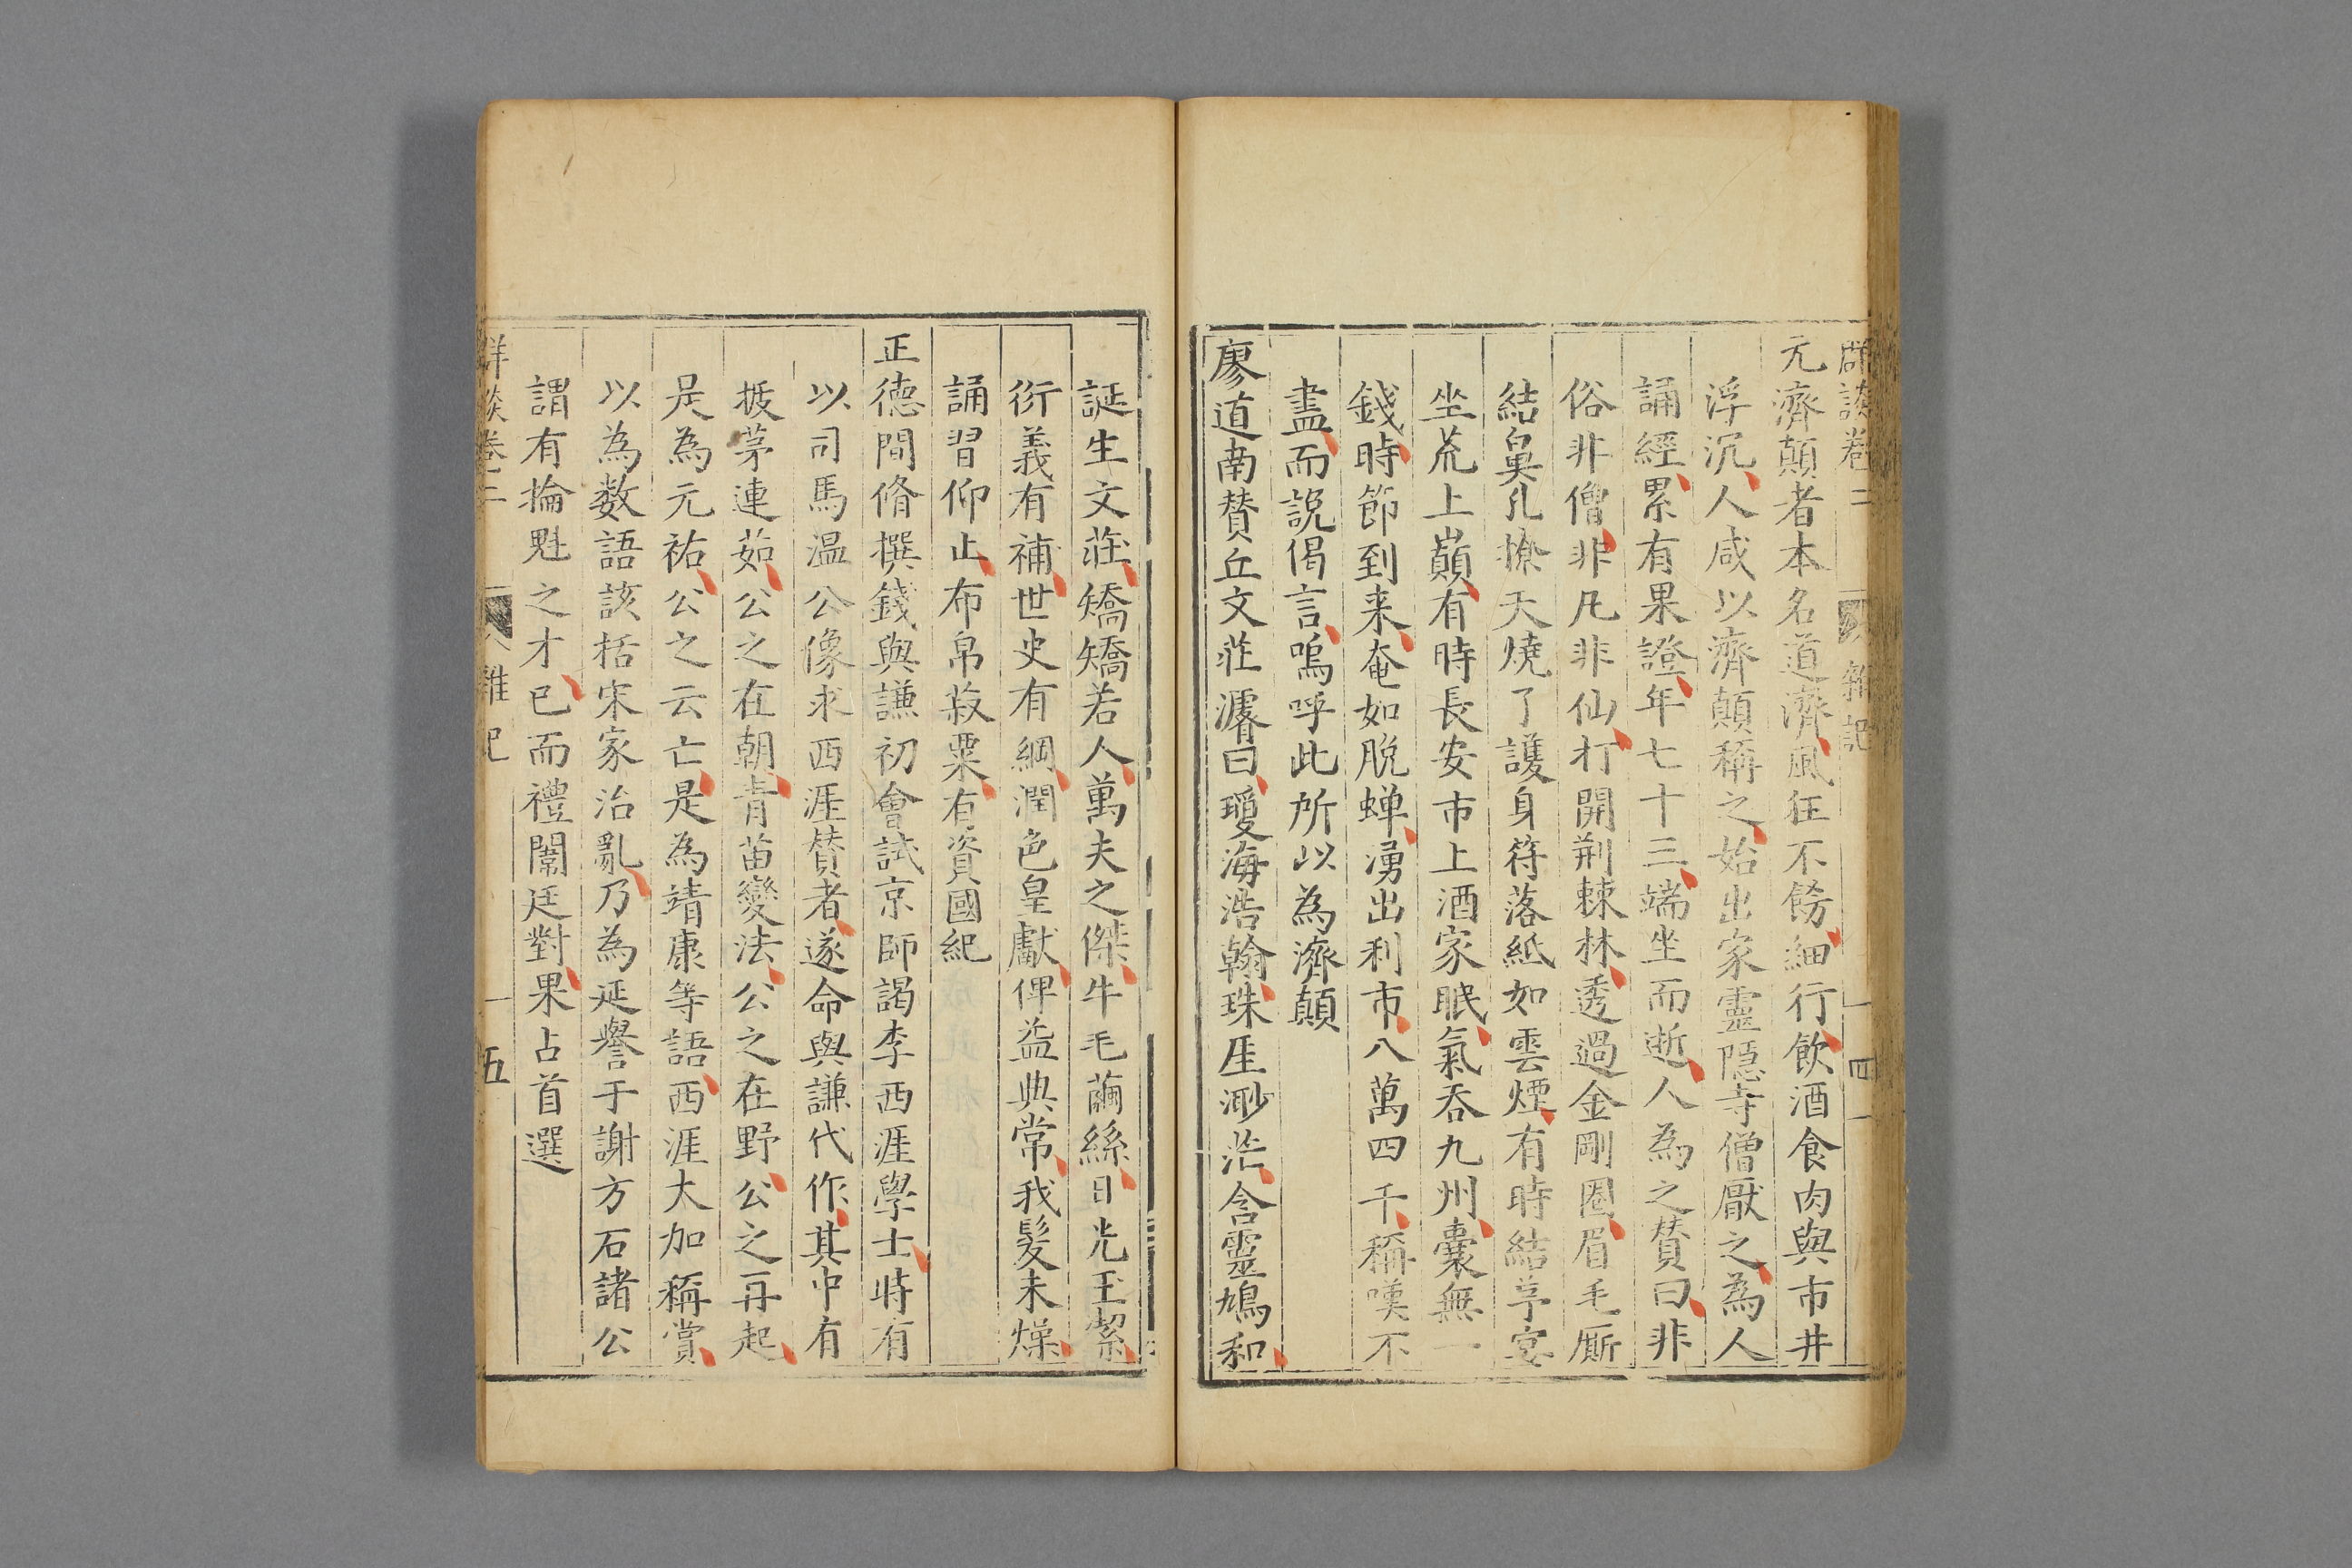 群談卷二　雜記　四
元濟顛者本名道濟風狂不餝細行飲酒食肉與市井
浮沉人咸以濟顛稱之始出家靈隐寺僧厭之為人
誦經累有果證年七十三端坐而逝人為之賛曰非
俗非僧非凡非仙打開荆棘林透過金剛圈眉毛厮
結鼻孔撩天燒了護身符落紙如雲煙有時結茅宴
坐荒上巔有時長安市上酒家眠氣吞九州囊無一
錢時節到来奄如脫蟬湧出利市八萬四千稱嘆不
盡而說偈言嗚呼此所以為濟顛
廖道南賛丘文莊濬曰瓊海浩翰珠厓渺茫含靈鳩和
誕生文莊矯矯若人萬夫之傑牛毛繭絲日光玉絜
衍義有補世史有綱潤色皇猷俾益典常我髮未燥
誦習仰止布帛菽粟有資國紀
正德間脩撰錢與謙初會試京師謁李西涯學士時有
以司馬温公像求西涯賛者遂命與謙代作其中有
拔茅連茹公之在朝青苗變法公之在野公之再起
是為元祐公之云亡是為靖康等語西涯大加稱賞
以為数語該括宋家治亂乃為延譽于謝方石諸公
謂有掄魁之才已而禮闈廷對果占首選
群談卷二　雜記　五